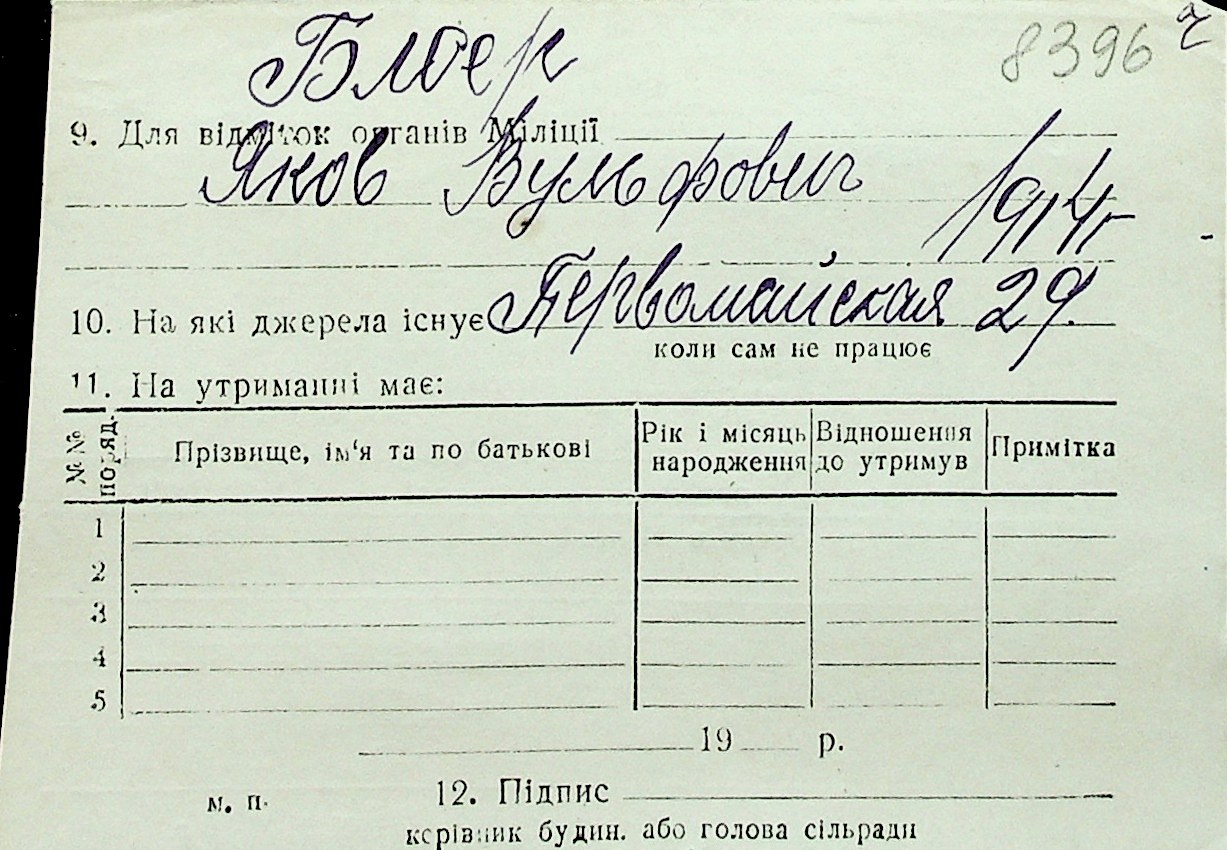 Блоер 8396
9. Для відміток органів Міліції
Яков Вульфович 1914 г
10. На які джерела існує Первомайская 29.
коли сам не працює
11. На утриманні має:
№ № поряд. Прізвище, ім'я та по батькові Рік і місяць народження Відношення до утримув Примітка
1
2
3
4
5
19 р.
м. п. 12. Підпис
керівник будин. або голова сільради